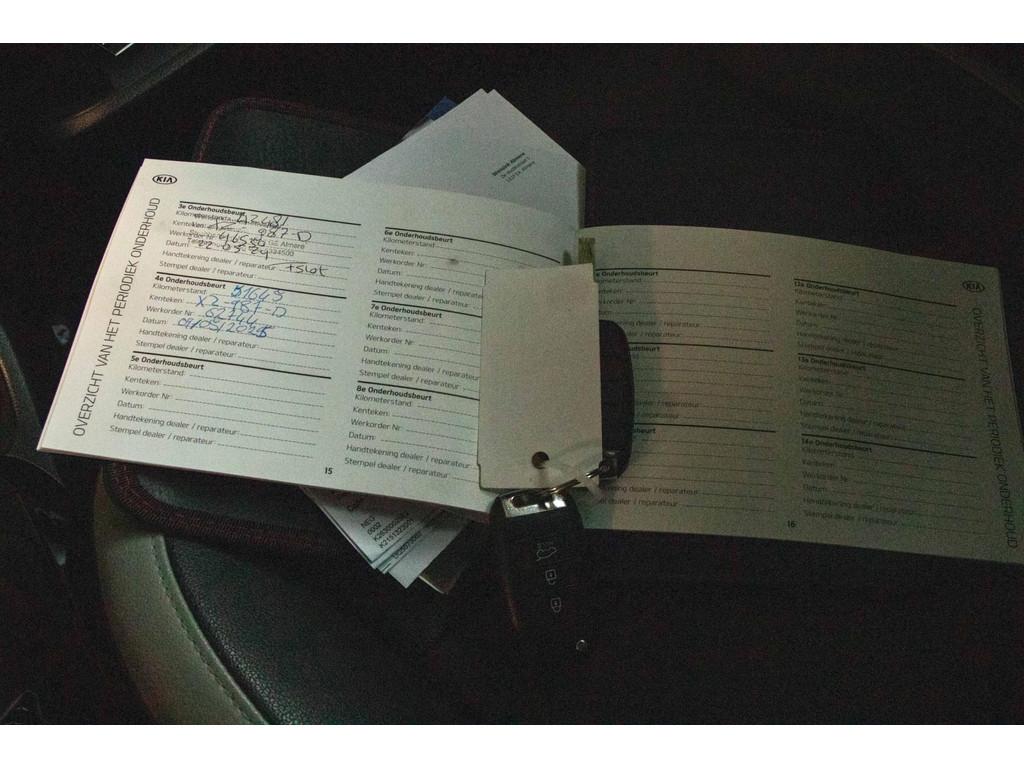 KIA
OVERZICHT VAN HET PERIODIEK ONDERHOUD
3e Onderhoudsbeurt
Kilometerstand:
Kenteken: 987-D
Werkorder Nr: 46580
Datum: 22-05-24
Handtekening dealer / reparateur: + slot
Stempel dealer / reparateur:
4e Onderhoudsbeurt
Kilometerstand: 51645
Kenteken: X2-987-D
Werkorder Nr: 62744
Datum: 09/05/2025
Handtekening dealer / reparateur:
Stempel dealer / reparateur:
5e Onderhoudsbeurt
Kilometerstand:
Kenteken:
Werkorder Nr:
Datum:
Handtekening dealer / reparateur:
Stempel dealer / reparateur:
15
6e Onderhoudsbeurt
Kilometerstand:
Kenteken:
Werkorder Nr:
Datum:
Handtekening dealer / reparateur:
Stempel dealer / reparateur:
7e Onderhoudsbeurt
Kilometerstand:
Kenteken:
Werkorder Nr:
Datum:
Handtekening dealer / reparateur:
Stempel dealer / reparateur:
8e Onderhoudsbeurt
Kilometerstand:
Kenteken:
Werkorder Nr:
Datum:
Handtekening dealer / reparateur:
Stempel dealer / reparateur:
Almere
Onderhoudsbeurt
dealer / reparateur:
dealer / reparateur:
12e Onderhoudsbeurt
Kilometerstand:
Kenteken:
Werkorder Nr:
Datum:
Handtekening dealer / reparateur:
Stempel dealer / reparateur:
13e Onderhoudsbeurt
Kilometerstand:
Kenteken:
Werkorder Nr:
Datum:
Handtekening dealer / reparateur:
Stempel dealer / reparateur:
14e Onderhoudsbeurt
Kilometerstand:
Kenteken:
Werkorder Nr:
Datum:
Handtekening dealer / reparateur:
Stempel dealer / reparateur:
16
KIA
OVERZICHT VAN HET PERIODIEK ONDERHOUD